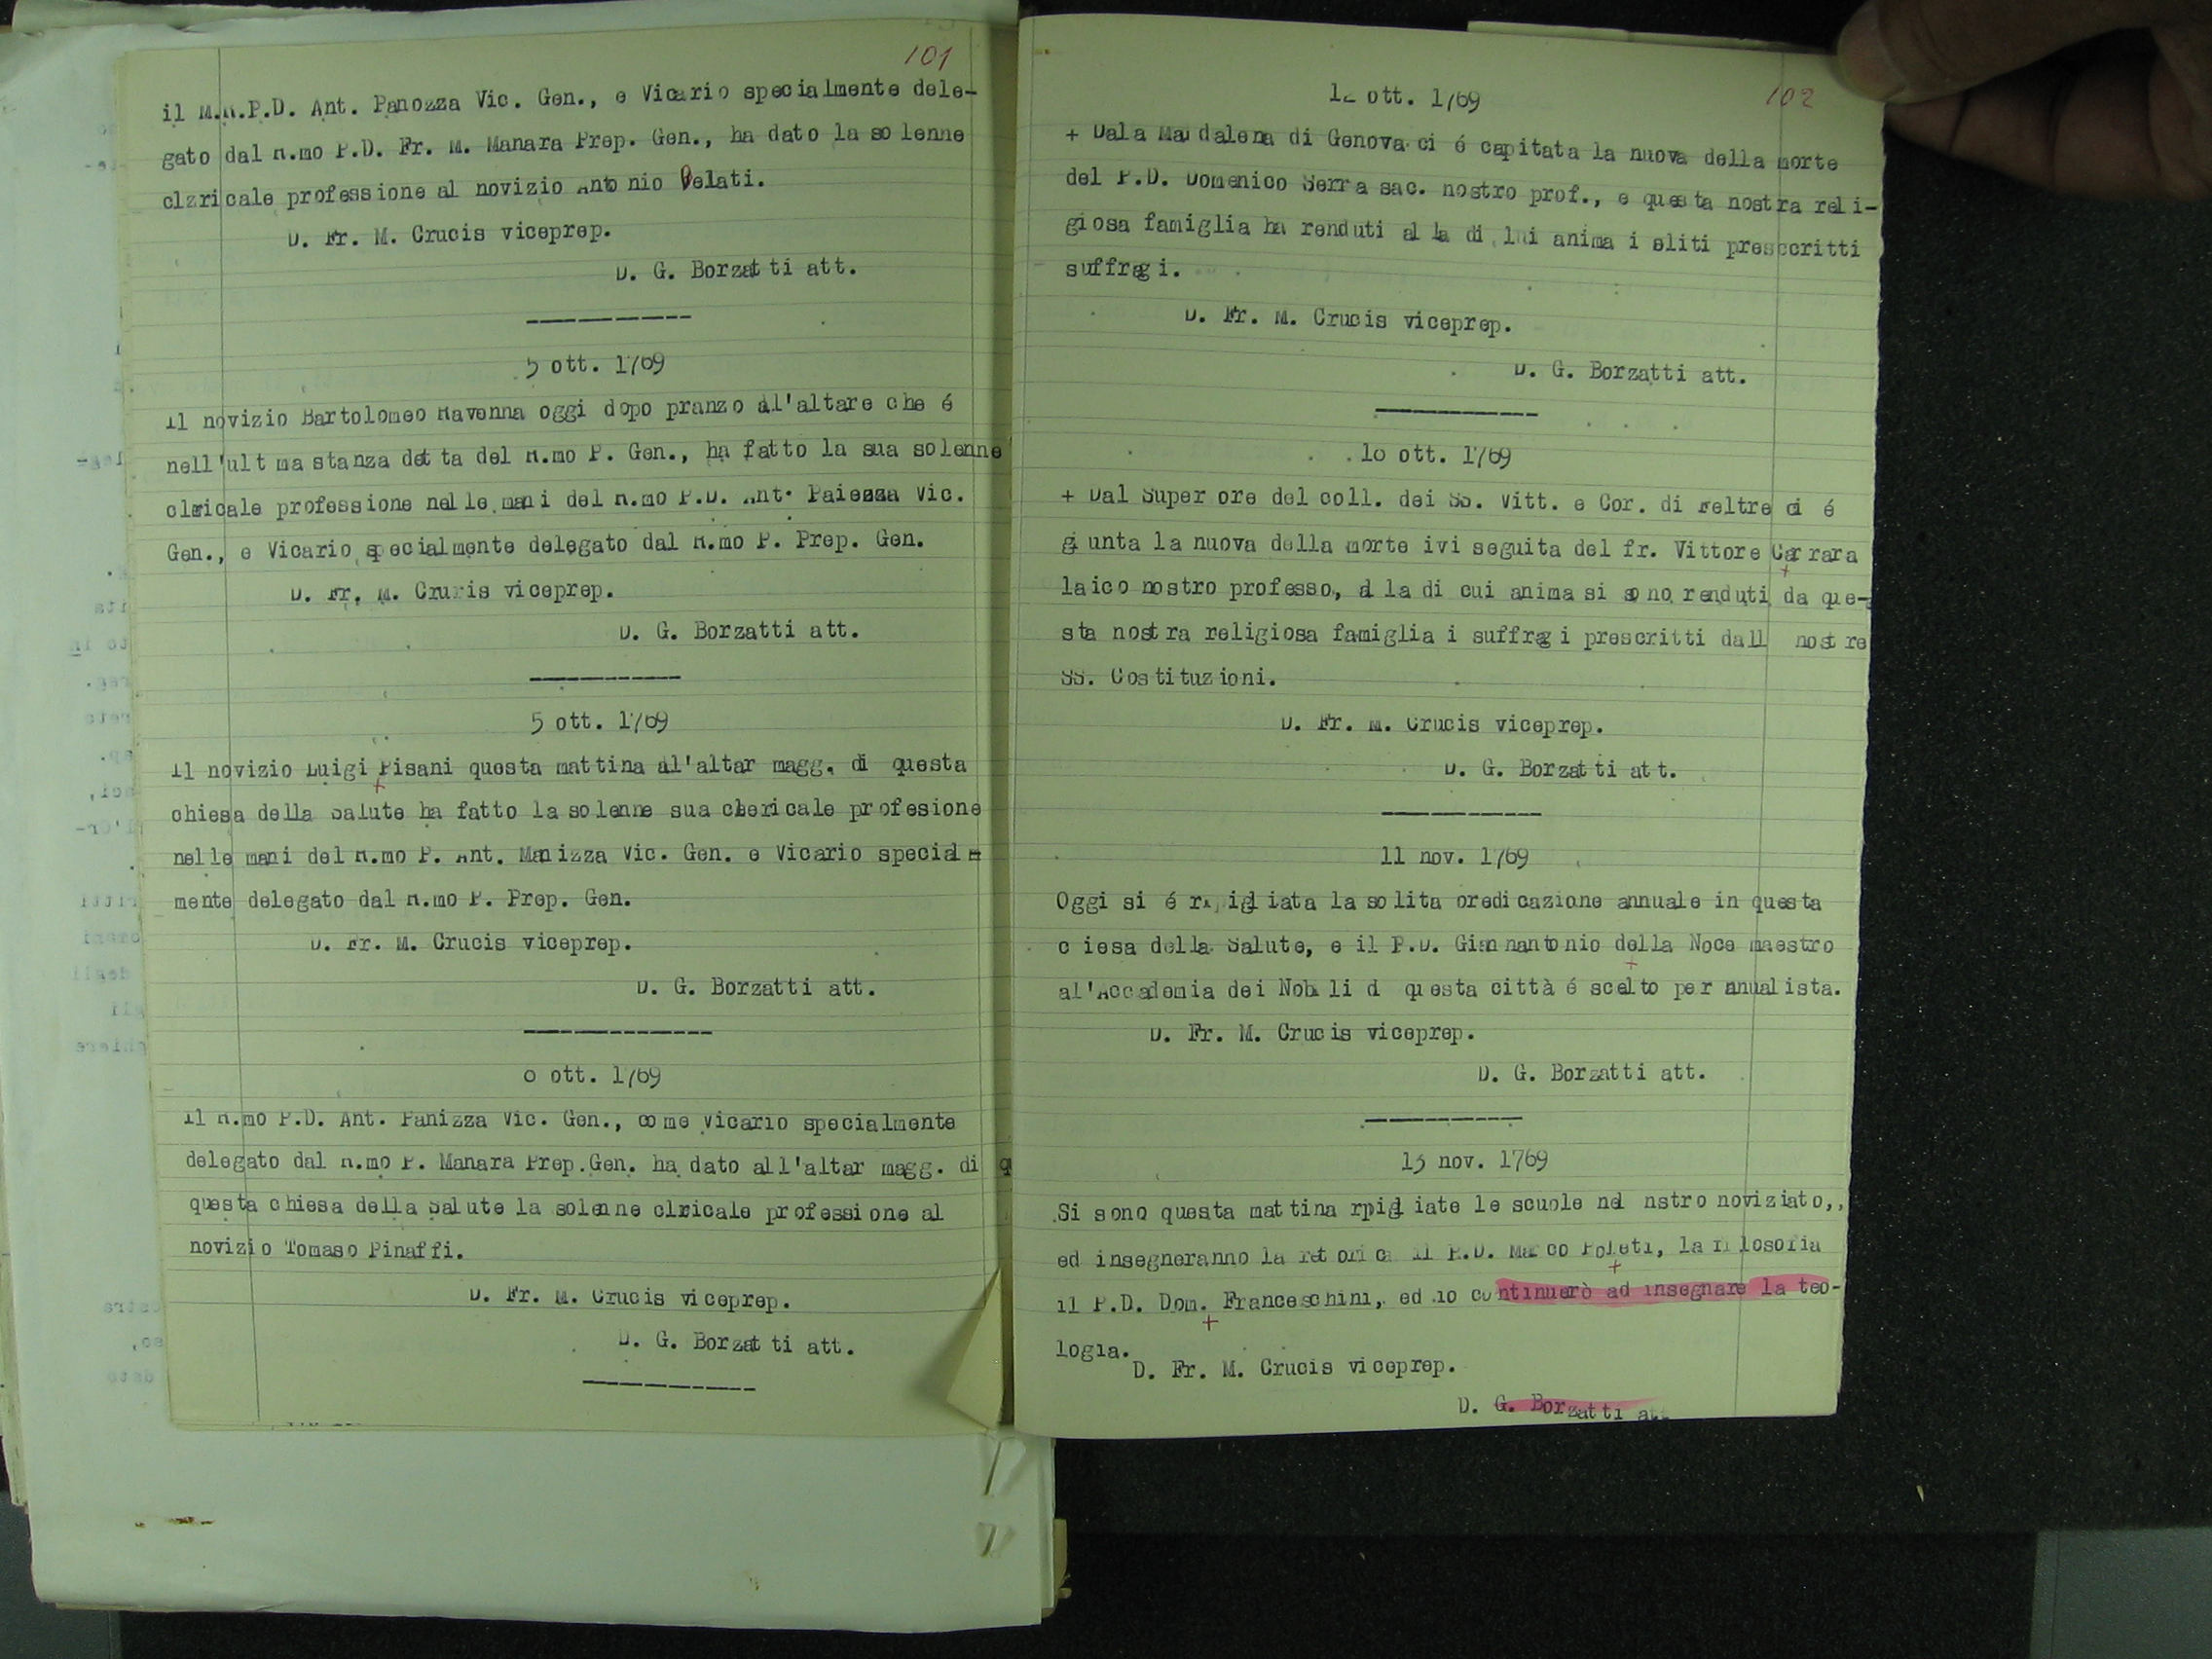 101
il M.R.P.D. Ant. Panozza Vic. Gen., e Vicario specialmente dele-
gato dal R.mo P.D. Fr. M. Manara Prep. Gen., ha dato la solenne
clzricale professione al novizio Antonio Pelati.
D. Fr. M. Crucis viceprep.
D. G. Borzatti att.
------------
5 ott. 1769
Il novizio Bartolomeo Ravenna oggi dopo pranzo all'altare che é
nell'ult ma stanza detta del R.mo P. Gen., ha fatto la sua solenne
clericale professione nelle mani del R.mo P.D. Ant. Paiezza Vic.
Gen., e Vicario specialmente delegato dal R.mo P. Prep. Gen.
D. Fr. M. Cruris viceprep.
D. G. Borzatti att.
------------
5 ott. 1769
Il novizio Luigi Pisani questa mattina all'altar magg. di questa
chiesa della Salute ha fatto la solenne sua chericale profesione
nelle mani del R.mo P. Ant. Manizza Vic. Gen. e Vicario special-
mente delegato dal R.mo P. Prep. Gen.
D. Fr. M. Crucis viceprep.
D. G. Borzatti att.
------------
ott. 1769
Il R.mo P.D. Ant. Panizza Vic. Gen., come Vicario specialmente
delegato dal R.mo P. Manara Prep.Gen. ha dato all'altar magg. di q
questa chiesa della Salute la solenne clricale professione al
novizio Tomaso Pinaffi.
D. Fr. M. Crucis viceprep.
D. G. Borzatti att.
------------
102
12 ott. 1769
+ Dala Maddalena di Genova ci é capitata la nuova della morte
del P.D. Domenico Serra sac. nostro prof., e questa nostra reli-
giosa famiglia ha renduti alla di lui anima i sliti presccritti
suffragi.
D. Fr. M. Crucis viceprep.
D. G. Borzatti att.
------------
ott. 1769
+ Dal Super ore del coll. dei SS. Vitt. e Cor. di Feltre ci é
giunta la nuova della morte ivi seguita del fr. Vittore Carrara
laico nostro professo, alla di cui anima si sono renduti da que-
sta nostra religiosa famiglia i suffragi prescritti dall nostre
SS. Costituzioni.
D. Fr. M. Crucis viceprep.
D. G. Borzatti att.
------------
11 nov. 1769
Oggi si é ripigliata la solita oredicazione annuale in questa
c iesa della Salute, e il P.D. Giannantonio della Noce maestro
al'Accademia dei Nobili d questa città é scelto per annualista.
D. Fr. M. Crucis viceprep.
D. G. Borzatti att.
------------
13 nov. 1769
Si sono questa mattina rpigliate le scuole nel nstro noviziato,,
ed insegneranno la retorica il P.D. Marco Poleti, la filosofia
il P.D. Dom. Franceschini, ed io continuerò ad insegnare la teo-
logia.
D. Fr. M. Crucis viceprep.
D. G. Borzatti att